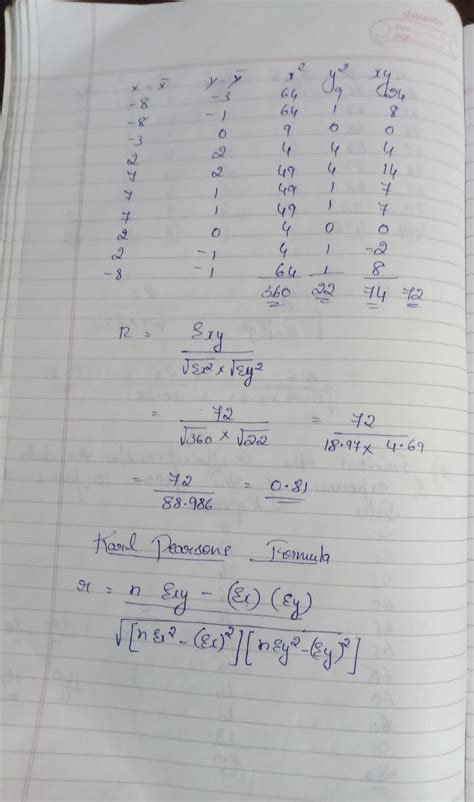 x - x̄ y - ȳ x² y² xy
-8 -3 64 9 24
-8 -1 64 1 8
-3 0 9 0 0
2 2 4 4 4
7 2 49 4 14
7 1 49 1 7
7 1 49 1 7
2 0 4 0 0
2 -1 4 1 -2
-8 -1 64 1 8
360 22 74 72
r = Σxy / √Σx² × √Σy²
= 72 / √360 × √22 = 72 / 18.97 × 4.69
= 72 / 88.986 = 0.81
Karl Pearsons Formula
r = n Σxy - (Σx) (Σy) / √[nΣx² - (Σx)²] [nΣy² - (Σy)²]